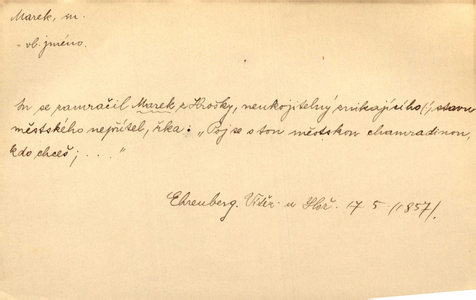 Marek, m.
- vl. jméno.
se zamračil Marek z Hrošky, neukojitelný vnikajícího (!) stavu
městského nepřítel, řka: „Poj se s tou městskou chamradinou,
kdo chceš; . . . . "
Ehrenberg. Vítěz. u Hoř. 17 5 (1857).